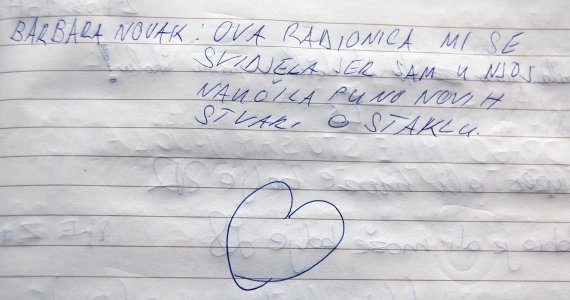 BARBARA NOVAK: OVA RADIONICA MI SE
SVIDJELA JER SAM U NJOJ
NAUČILA PUNO NOVIH
STVARI O STAKLU.